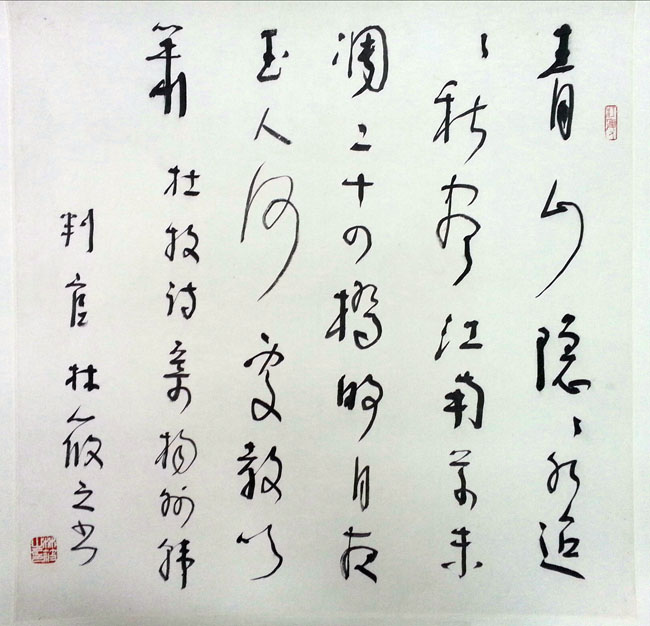 青山隐〻水迢
〻秋尽江南草未
凋二十四橋明月夜
玉人何處教吹
箫 杜牧诗寄扬州韩
判官 林筱之书